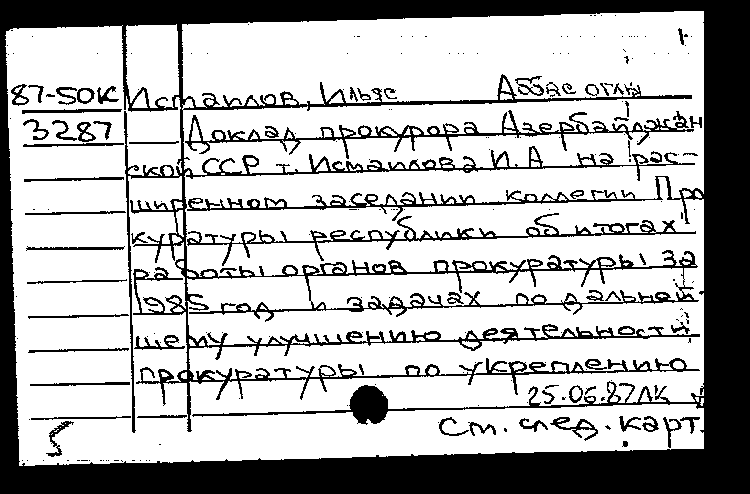 87-50К Исмаилов, Ильяс Аббас оглы
3287 Доклад прокурора Азербайджан
ской ССР т. Исмаилова И.А на рас-
ширенном заседании коллегии Про
куратуры республики об итогах
работы органов прокуратуры за
1985 год и задачах по дальней-
шему улучшению деятельности
прокуратуры по укреплению
25.06.87ЛК
5 См. след. карт.